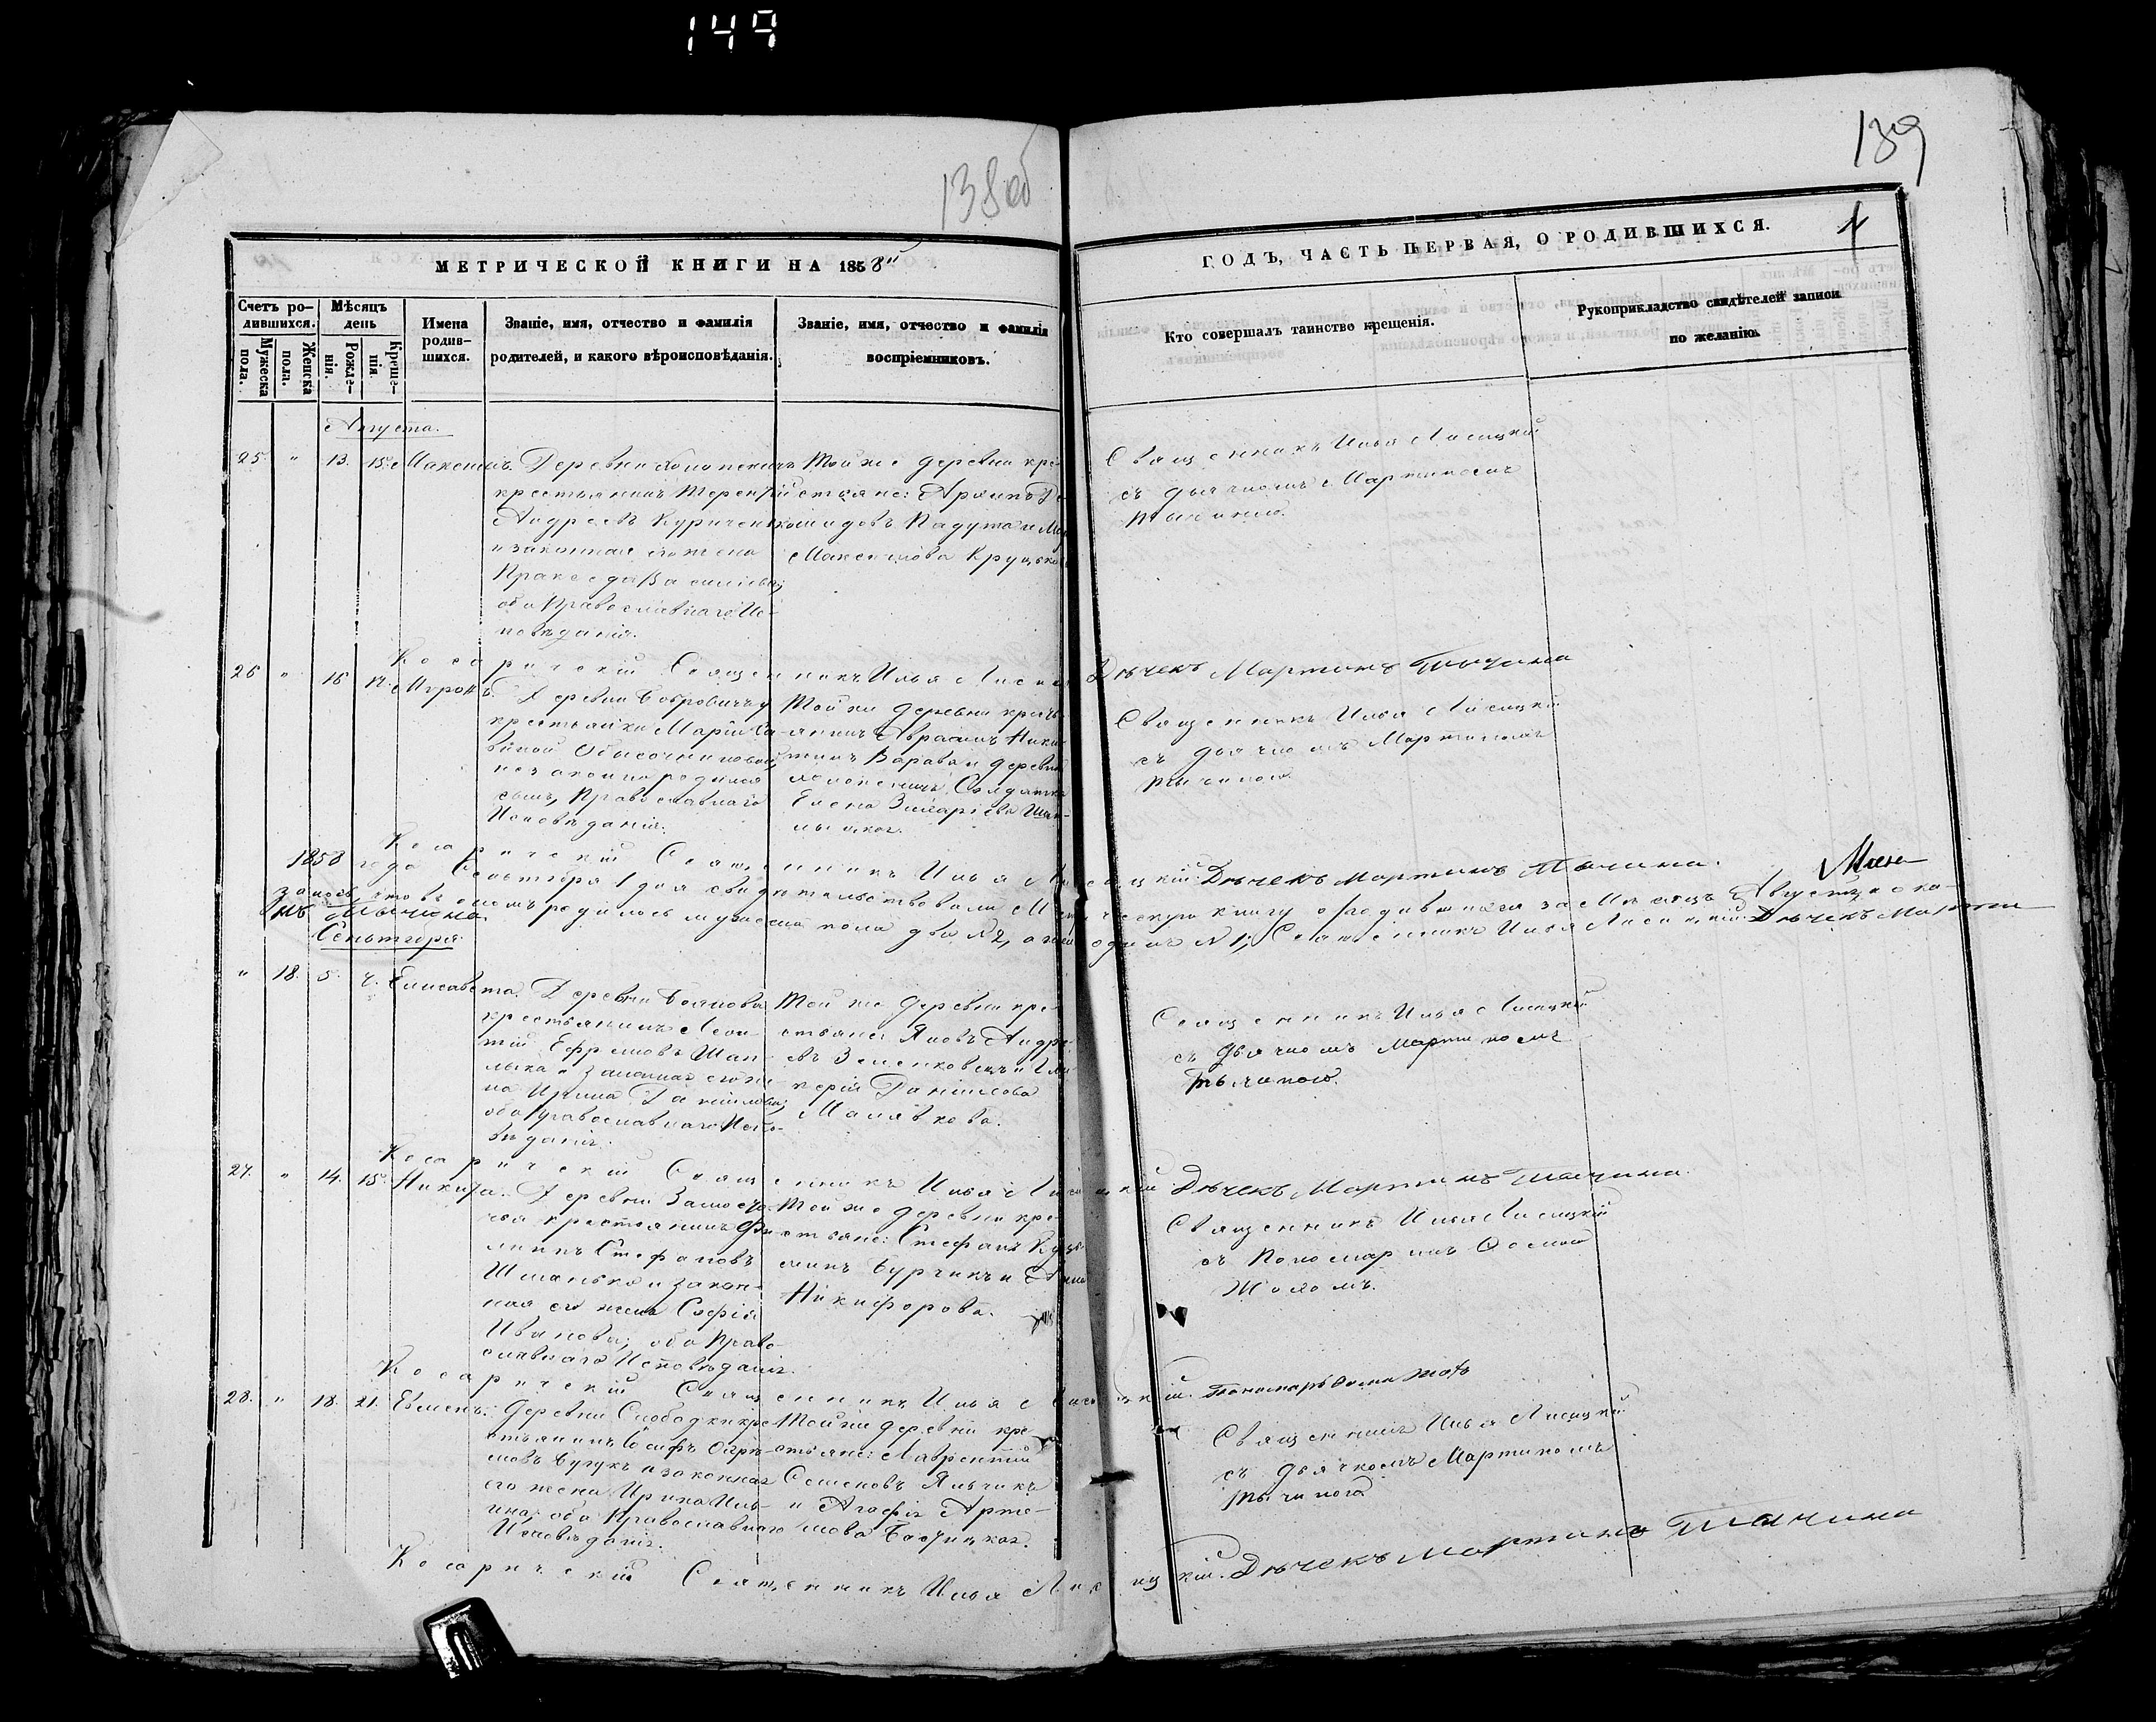 149
138об
139
МЕТРИЧЕСКОЙ КНИГИ НА 1858й
ГОДЪ, ЧАСТЬ ПЕРВАЯ, О РОДИВШИХСЯ.
Счетъ родившихся.
Мужеска пола.
Женска пола.
Мѣсяцъ день
Рожденія.
Крещенія.
Имена родившихся.
Званіе, имя, отчество и фамилія
родителей, и какого вѣроисповѣданія.
Званіе, имя, отчество и фамилія
воспріемниковъ.
Кто совершалъ таинство крещенія.
Рукоприкладство свидѣтелей записи
по желанію.
Августа.
25 " 13. 15.
Деревни
крестьянинъ Терентій
Андреевъ Куриченко
и законная его жена
Праксeда Васильева;
оба Православнаго Ис-
повѣданія.
Той же деревни кре-
стьяне:
Максимова
Священникъ Илья Лисицкій
съ дьячкомъ Мартиномъ
Тычиною.
Косаричскій Священникъ Илья
Дьячекъ Мартинъ Тычина
26 " 16
Деревни Бобровичъ у
крестьянки Маріи
незаконно родился
сынъ, Православнаго
Исповѣданія.
Той же деревни кресть-
янинъ Авраамъ
деревни
Солдатка
Елена
Священникъ Илья Лисицкій
съ дьячкомъ Мартиномъ
Тычиною.
Косаричскій Священникъ Илья Лисицкій. Дьячекъ Мартинъ Тычина.
1858 года Сентября 1 дня свидѣтельствовали Метрическую книгу о родившихся за Мѣсяцъ Августъ и ока-
залось, что въ ономъ родилось мужеска пола два №2, а одинъ №1; Священникъ Илья Лисицкій. Дьячекъ Мартинъ
Тычина.
Сентября
" 18. 5. 7. Елисавета.
Деревни Бояново
крестьянинъ Леон-
тій Ефремовъ Шап-
лыка и законная его же-
на Ирина Даніилова;
оба Православнаго Испо-
вѣданія.
Той же деревни кре-
стьяне: Яковъ Андре-
евъ Зеленковецъ и Гли-
керія Даніилова
Малявкова.
Священникъ Илья Лисицкій
съ дьячкомъ Мартиномъ
Тычиною.
Косаричскій Священникъ Илья Лисицкій Дьячекъ Мартинъ Тычина.
27. " 14. 15. Никита.
Деревни Замосто-
чья крестьянинъ Фи-
липпъ Стефановъ
Шманько и закон-
ная его жена Софія
Иванова; оба Право-
славнаго Исповѣданія.
Той же деревни кре-
стьяне: Стефанъ
Бурчикъ и
Никифорова.
Священникъ Илья Лисицкій
съ Пономаремъ Фомою
Косаричскій Священникъ Илья Лисицкій. Пономарь Фома
28. " 18. 21. Евмень.
Деревни Слободки кре-
стьянинъ Іосифъ
Бугукъ и законная
его жена Ирина Иль-
ина; оба Православнаго
Исповѣданія.
Той же деревни кре-
стьяне: Лаврентій
Семеновъ Яльчикъ
и Агафія Арте-
мова
Священникъ Илья Лисицкій
съ дьячкомъ Мартиномъ
Тычиною
Косаричскій Священникъ Илья Лисицкій. Дьячекъ Мартинъ Тычина